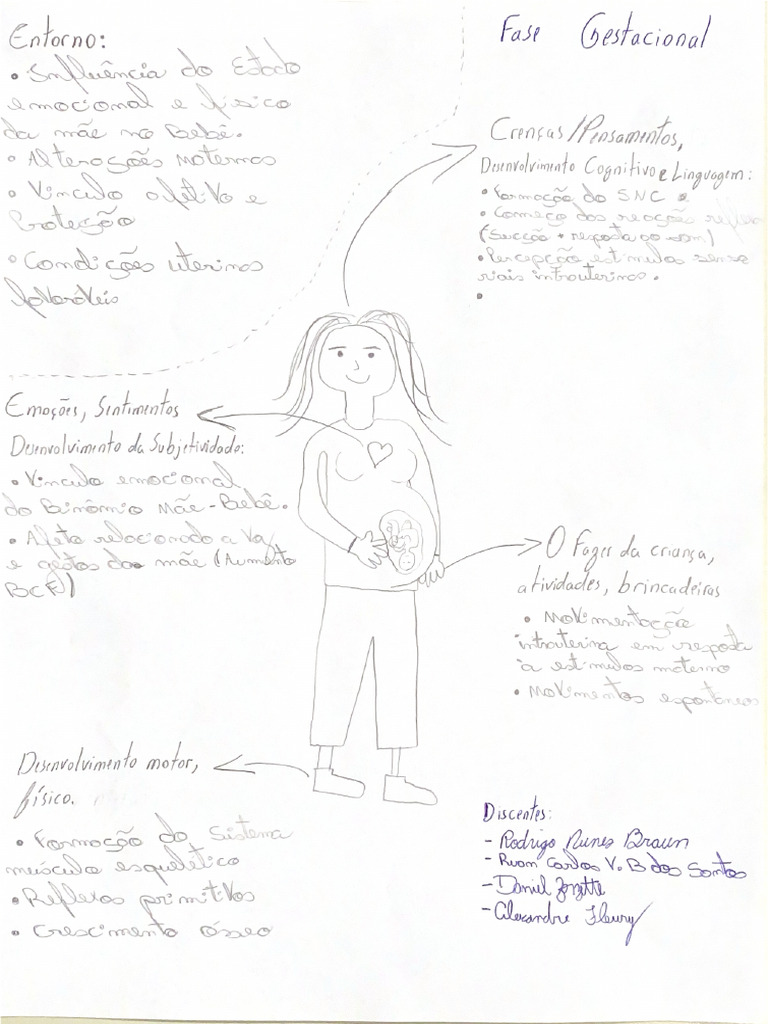 Fase Gestacional
Entorno:
• Influência do Estado
emocional e físico
da mãe no Bebê.
• Alterações maternas
• Vinculo afetivo e
Proteção
• Condições uterinas
favoráveis
Crenças/Pensamentos,
Desenvolvimento Cognitivo e Linguagem:
• Formação do SNC
• Começo das reações reflexa
(Sucção + resposta ao som)
• Percepção estimulos senso
riais intrauterinos.
•
Emoções, Sentimentos
Desenvolvimento da Subjetividade:
• Vinculo emocional
do Binômio Mãe-Bebê.
• Afeto relacionado a Voz
e gestos da mãe (Aumento
BCF)
O Fazer da criança,
atividades, brincadeiras
• Movimentação
intrauterina em resposta
à estimulos materno
• Movimentos espontâneos
Desenvolvimento motor,
físico.
• Formação do Sistema
músculo esquelético
• Reflexos primitivos
• Crescimento ósseo
Discentes:
- Rodrigo Nunes Braun
- Ruan Carlos V. B dos Santos
- Daniel
- Alexandre Fleury